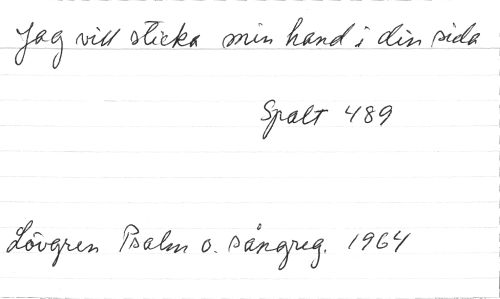 Jag vill sticka min hand i din sida
Spalt 489
Lövgren Psalm o. sångreg. 1964